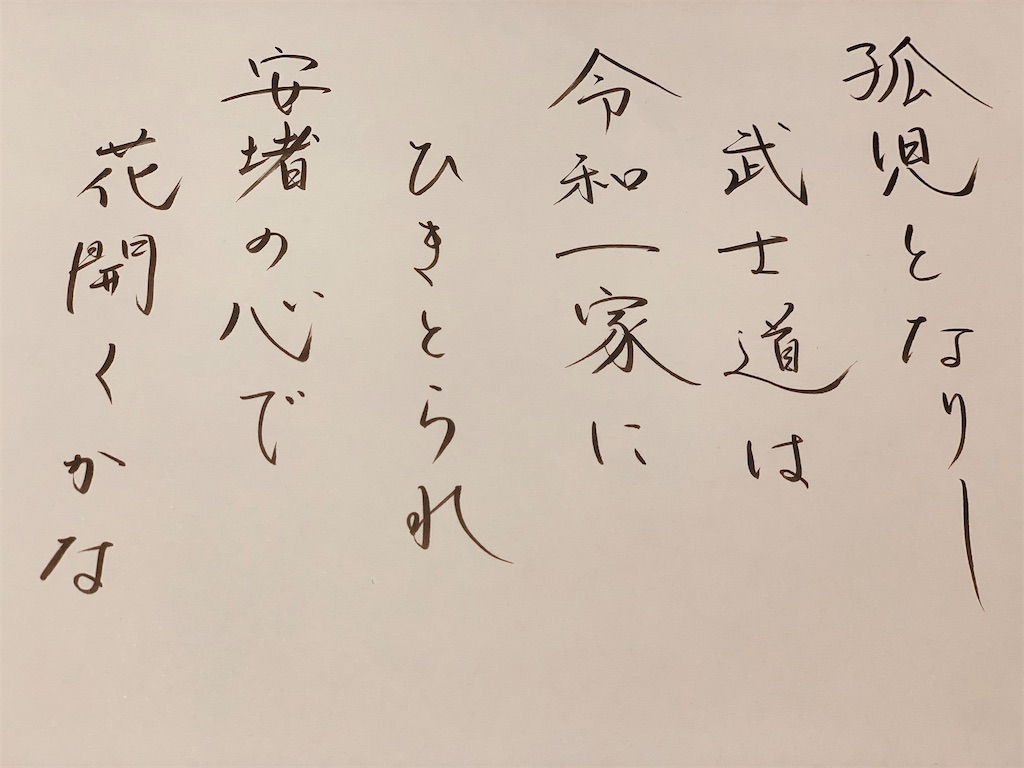 孤児となりし
武士道は
令和一家に
ひきとられ
安堵の心で
花開くかな